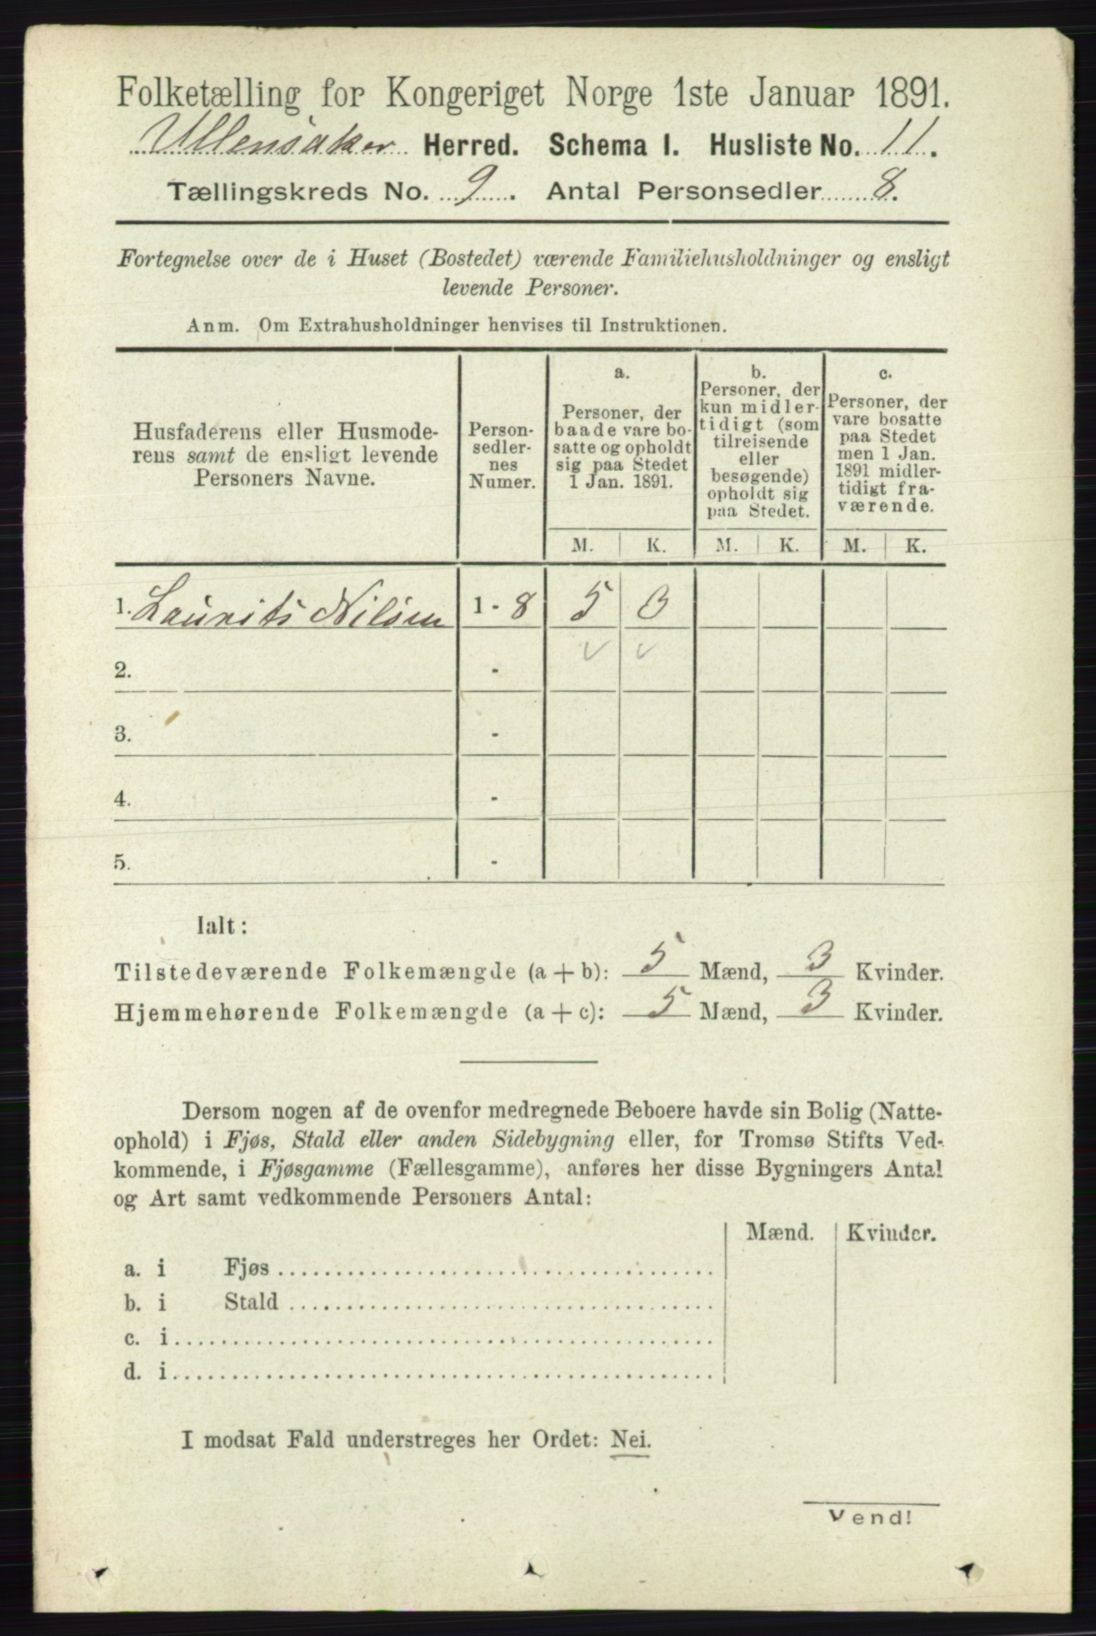 Folketælling for Kongeriget Norge 1ste Januar 1891.
Ullensaker Herred. Schema I. Husliste No. 11.
Tællingskreds No. 9. Antal Personsedler 8.
Fortegnelse over de i Huset (Bostedet) værende Familiehusholdninger og ensligt
levende Personer.
Anm. Om Extrahusholdninger henvises til Instruktionen.
Husfaderens eller Husmode-
rens samt de ensligt levende
Personers Navne.
Person-
sedler-
nes
Numer.
a.
Personer, der
baade vare bo-
satte og opholdt
sig paa Stedet
1 Jan. 1891.
b.
Personer, der
kun midler-
tidigt (som
tilreisende
eller
besøgende)
opholdt sig
paa Stedet.
c.
Personer, der
vare bosatte
paa Stedet
men 1 Jan.
1891 midler-
tidigt fra-
værende.
M. K. M. K. M. K.
1. Laurits Nilsen 1 - 8 5 3
2. -
3. -
4. -
5. -
Ialt:
Tilstedeværende Folkemængde (a + b): 5 Mænd, 3 Kvinder.
Hjemmehørende Folkemængde (a + c): 5 Mænd, 3 Kvinder.
Dersom nogen af de ovenfor medregnede Beboere havde sin Bolig (Natte-
ophold) i Fjøs, Stald eller anden Sidebygning eller, for Tromsø Stifts Ved-
kommende, i Fjøsgamme (Fællesgamme), anføres her disse Bygningers Antal
og Art samt vedkommende Personers Antal:
Mænd. Kvinder.
a. i Fjøs
b. i Stald
c. i
d. i
I modsat Fald understreges her Ordet: Nei.
Vend!